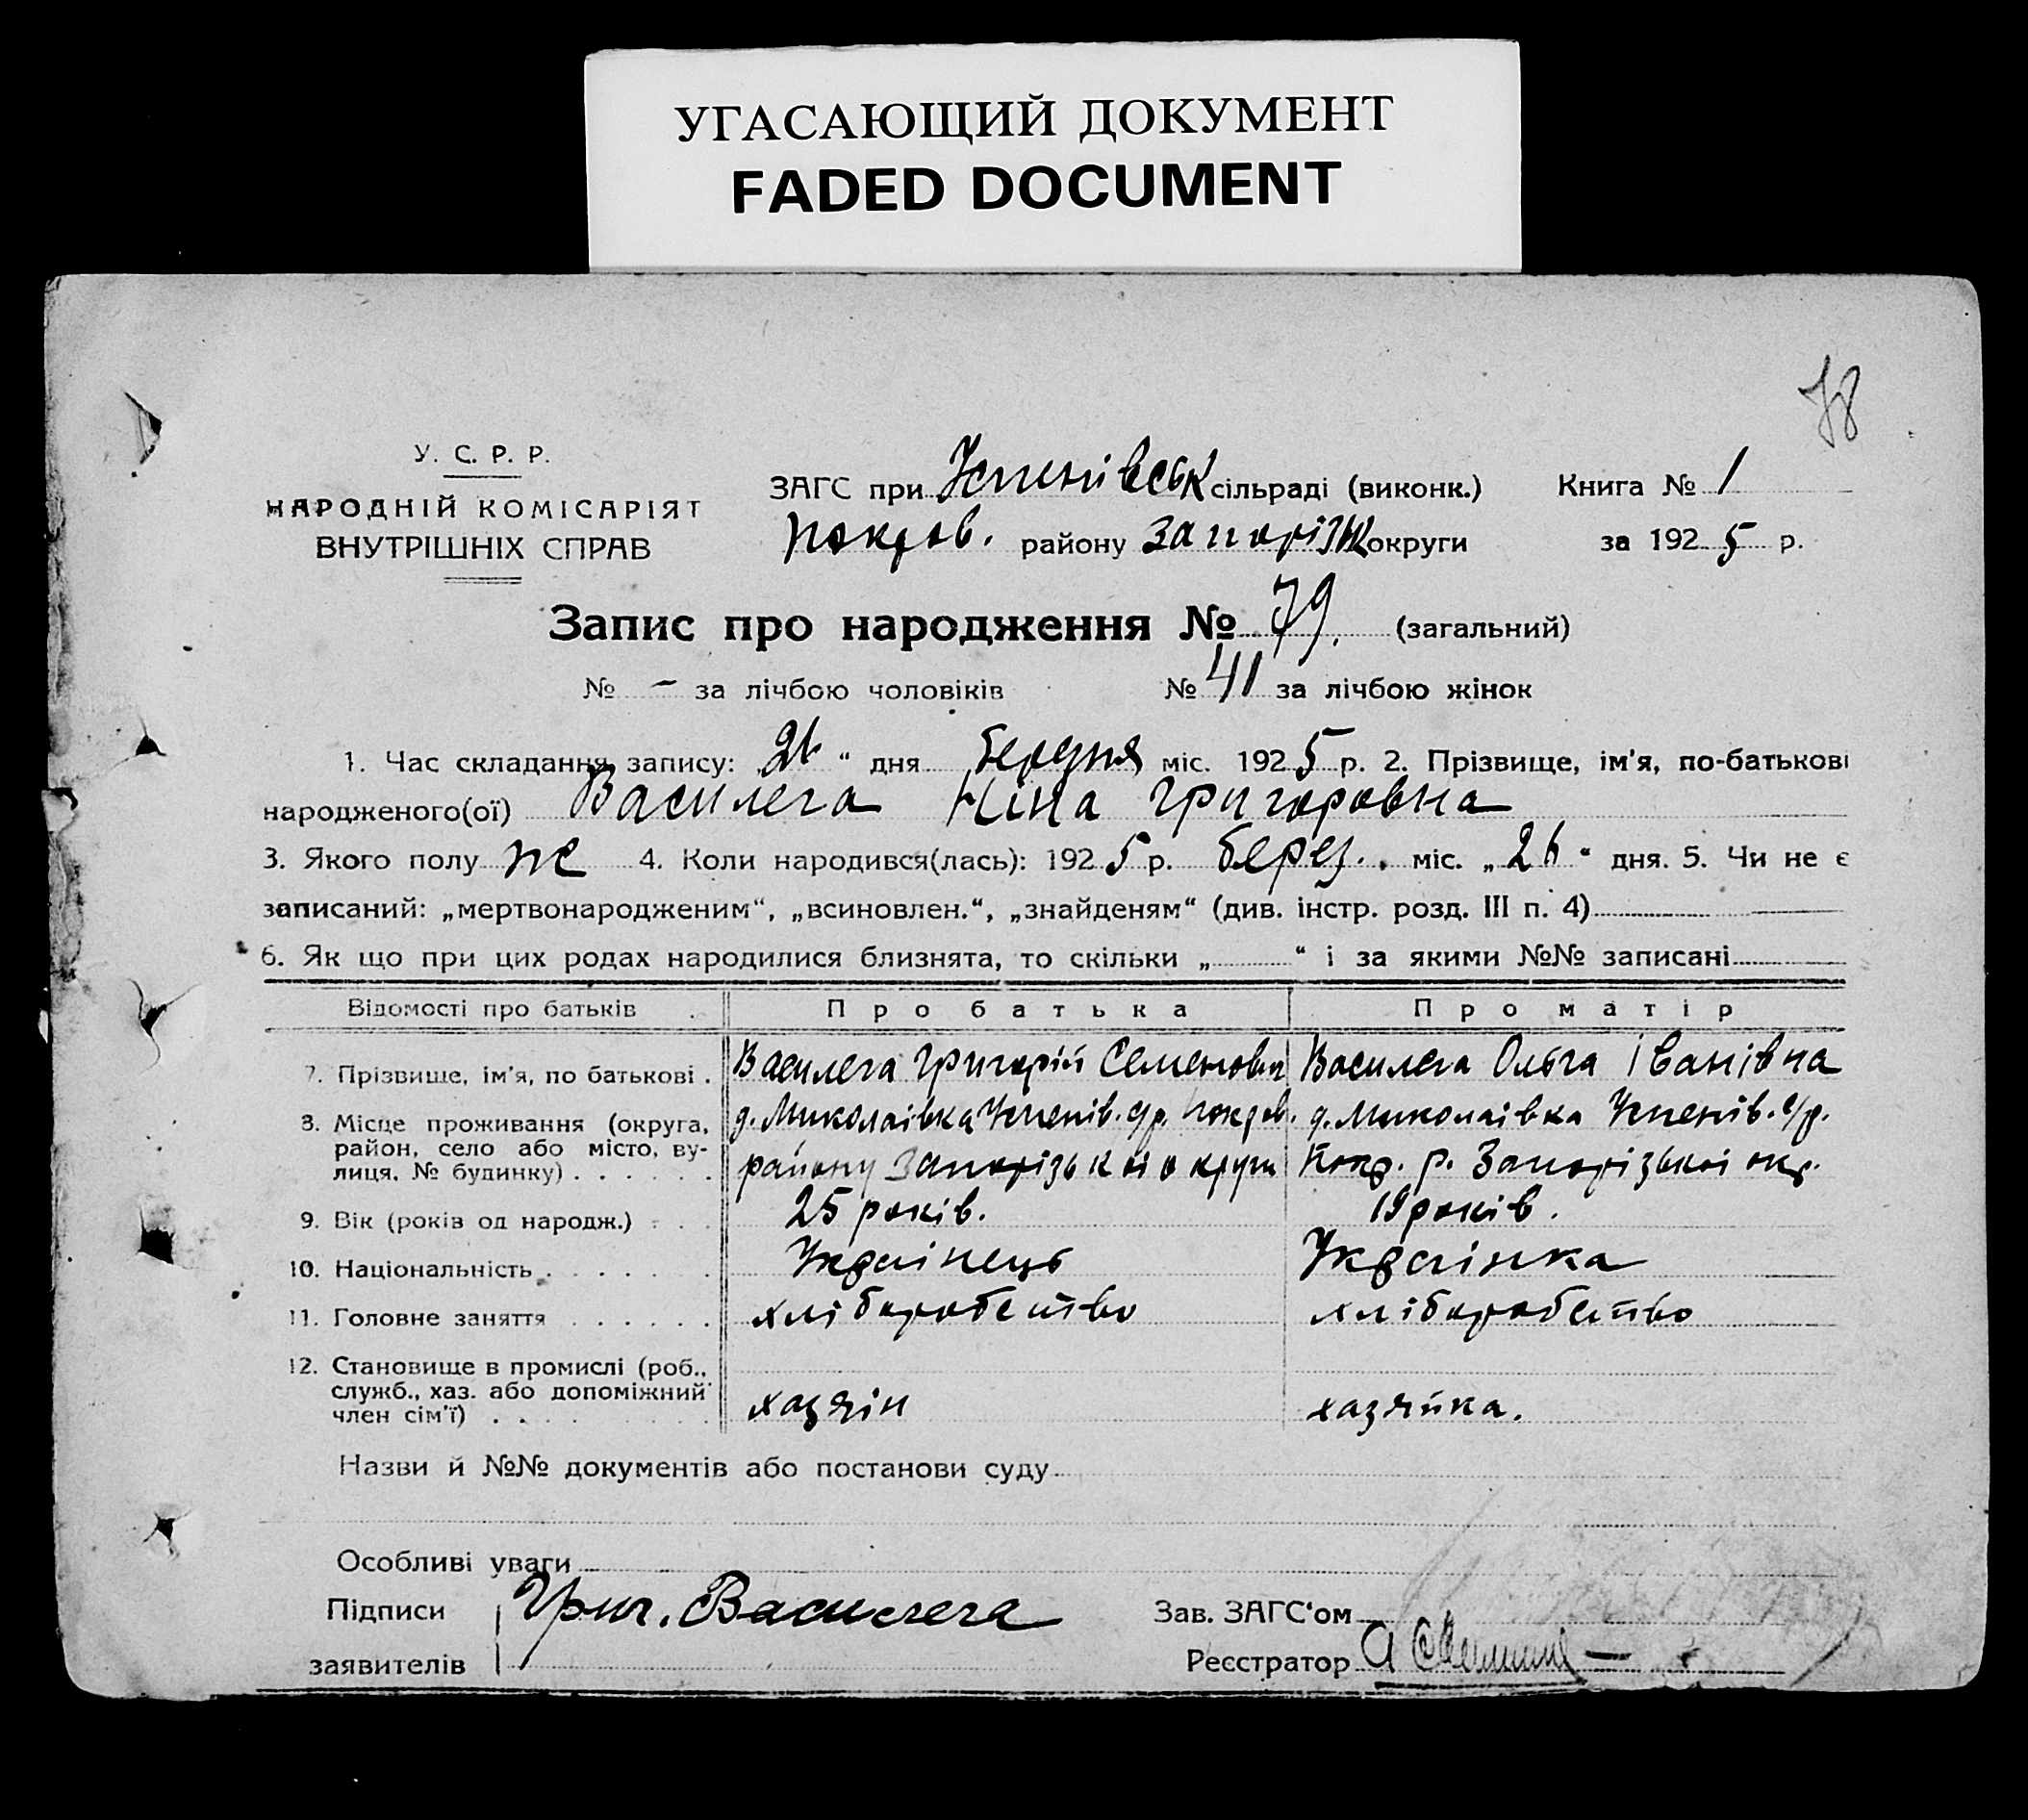 УГАСАЮЩИЙ ДОКУМЕНТ
FADED DOCUMENT
78
У. С. Р. Р.
НАРОДНІЙ КОМІСАРІЯТ
ВНУТРІШНІХ СПРАВ
ЗАГС при Успенівськ сільраді (виконк.) Книга № 1
Покров. району Запоріж округи за 1925 р.
Запис про народження № 79. (загальний)
№ - за лічбою чоловіків № 41 за лічбою жінок
1. Час складання запису: 26 “ дня березня міс. 1925 р. 2. Прізвище, ім'я, по-батькові
народженого(ої) Василега Ніна Григоровна
3. Якого полу же 4. Коли народився(лась): 1925 р. берез. міс. „26“ дня. 5. Чи не є
записаний: „мертвонародженим“, „всиновлен.“, „знайденям“ (див. інстр. розд. III п. 4)
6. Як що при цих родах народилися близнята, то скільки „ “ і за якими №№ записані
Відомості про батьків Про батька Про матір
7. Прізвище, ім'я, по батькові . Василега Григорій Семенович Василега Ольга Іванівна
8. Місце проживання (округа, д. Миколаівка Успенів. с/р. Покров. д. Миколаівка Успенів. с/р.
район, село або місто, ву-
лиця, № будинку) . . . . . . району Запорізькоі округи Покр. р. Запорізькоі окр.
9. Вік (років од народж.) . . . 25 років. 19 років.
10. Національність . . . . . . . Украінець Украінка
11. Головне заняття . . . . . . хліборобство хліборобство
12. Становище в промислі (роб.,
служб., хаз. або допоміжний
член сім'ї) . . . . хазяін хазяйка.
Назви й №№ документів або постанови суду
Особливі уваги
Підписи Григ. Василега Зав. ЗАГС‘ом
заявителів Реєстратор